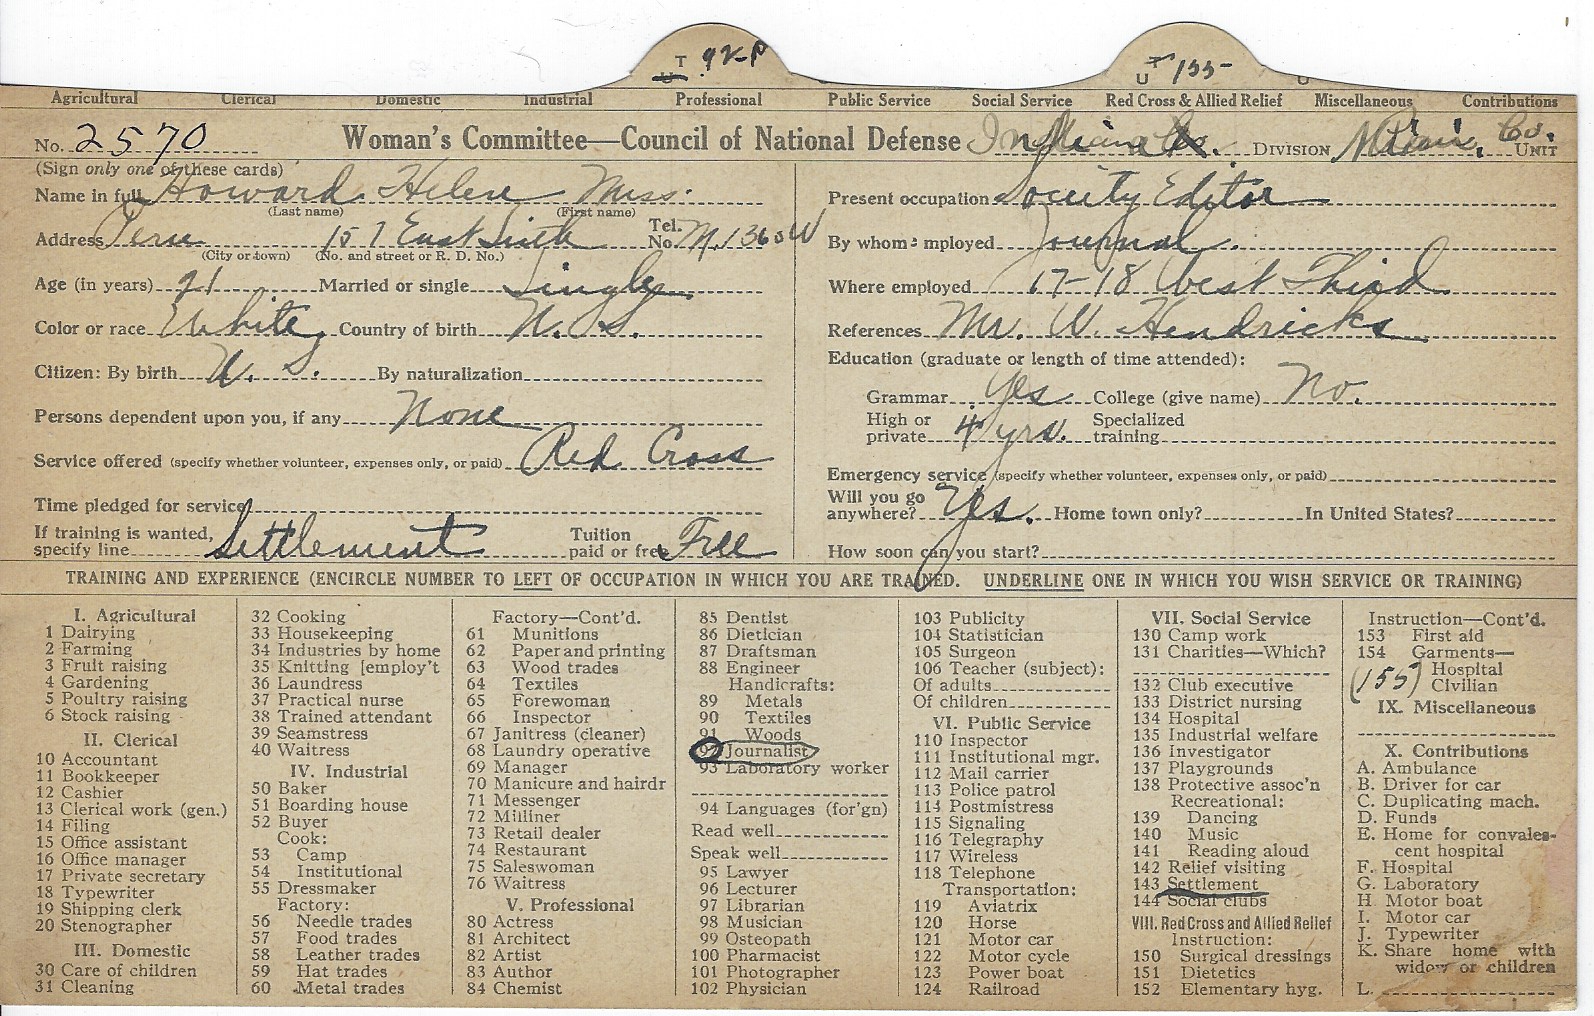 T 92-P
U
T 155
U
U
Agricultural Clerical Domestic Industrial Professional Public Service Social Service Red Cross & Allied Relief Miscellaneous Contributions
No. 2570 Woman's Committee—Council of National Defense Indiana DIVISION Miami Co. UNIT
(Sign only one of these cards)
Name in full Howard Helen Miss.
(Last name) (First name)
Address Peru 157 East Sixth Tel. No. M. 1360 W
(City or town) (No. and street or R. D. No.)
Age (in years) 21 Married or single Single
Color or race White Country of birth U. S.
Citizen: By birth U. S. By naturalization
Persons dependent upon you, if any None
Service offered (specify whether volunteer, expenses only, or paid) Red Cross
Time pledged for service
If training is wanted, specify line Settlement Tuition paid or free Free
Present occupation Society Editor
By whom employed Journal.
Where employed 17-18 West Third
References Mr. W. Hendricks
Education (graduate or length of time attended):
Grammar Yes College (give name) No.
High or private 4 yrs. Specialized training
Emergency service (specify whether volunteer, expenses only, or paid)
Will you go anywhere? Yes. Home town only? In United States?
How soon can you start?
TRAINING AND EXPERIENCE (ENCIRCLE NUMBER TO LEFT OF OCCUPATION IN WHICH YOU ARE TRAINED. UNDERLINE ONE IN WHICH YOU WISH SERVICE OR TRAINING)
I. Agricultural
1 Dairying
2 Farming
3 Fruit raising
4 Gardening
5 Poultry raising
6 Stock raising
II. Clerical
10 Accountant
11 Bookkeeper
12 Cashier
13 Clerical work (gen.)
14 Filing
15 Office assistant
16 Office manager
17 Private secretary
18 Typewriter
19 Shipping clerk
20 Stenographer
III. Domestic
30 Care of children
31 Cleaning
32 Cooking
33 Housekeeping
34 Industries by home
35 Knitting [employ't
36 Laundress
37 Practical nurse
38 Trained attendant
39 Seamstress
40 Waitress
IV. Industrial
50 Baker
51 Boarding house
52 Buyer
Cook:
53 Camp
54 Institutional
55 Dressmaker
Factory:
56 Needle trades
57 Food trades
58 Leather trades
59 Hat trades
60 Metal trades
Factory—Cont'd.
61 Munitions
62 Paper and printing
63 Wood trades
64 Textiles
65 Forewoman
66 Inspector
67 Janitress (cleaner)
68 Laundry operative
69 Manager
70 Manicure and hairdr
71 Messenger
72 Milliner
73 Retail dealer
74 Restaurant
75 Saleswoman
76 Waitress
V. Professional
80 Actress
81 Architect
82 Artist
83 Author
84 Chemist
85 Dentist
86 Dietician
87 Draftsman
88 Engineer
Handicrafts:
89 Metals
90 Textiles
91 Woods
92 Journalist
93 Laboratory worker
94 Languages (for'gn)
Read well
Speak well
95 Lawyer
96 Lecturer
97 Librarian
98 Musician
99 Osteopath
100 Pharmacist
101 Photographer
102 Physician
103 Publicity
104 Statistician
105 Surgeon
106 Teacher (subject):
Of adults
Of children
VI. Public Service
110 Inspector
111 Institutional mgr.
112 Mail carrier
113 Police patrol
114 Postmistress
115 Signaling
116 Telegraphy
117 Wireless
118 Telephone
Transportation:
119 Aviatrix
120 Horse
121 Motor car
122 Motor cycle
123 Power boat
124 Railroad
VII. Social Service
130 Camp work
131 Charities—Which?
132 Club executive
133 District nursing
134 Hospital
135 Industrial welfare
136 Investigator
137 Playgrounds
138 Protective assoc'n
Recreational:
139 Dancing
140 Music
141 Reading aloud
142 Relief visiting
143 Settlement
144 Social clubs
VIII. Red Cross and Allied Relief
Instruction:
150 Surgical dressings
151 Dietetics
152 Elementary hyg.
Instruction—Cont'd.
153 First aid
154 Garments—
Hospital
(155) Civilian
IX. Miscellaneous
X. Contributions
A. Ambulance
B. Driver for car
C. Duplicating mach.
D. Funds
E. Home for convales-
cent hospital
F. Hospital
G. Laboratory
H. Motor boat
I. Motor car
J. Typewriter
K. Share home with
widow or children
L.